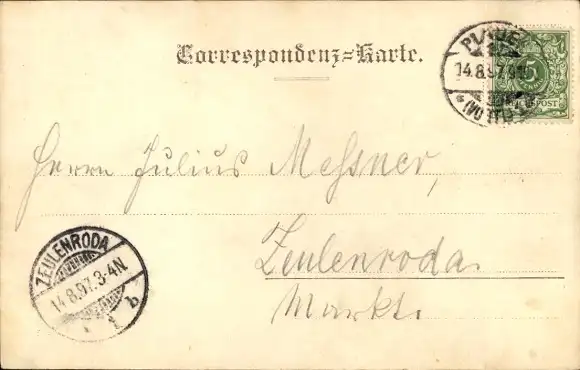 Correspondenz=Karte.
PLAUEN
14.8.97.
(VOGTL)
5
REICHSPOST
Herrn Julius Messner,
Zeulenroda
Markt.
ZEULENRODA
14.8.97.3-4N.
b